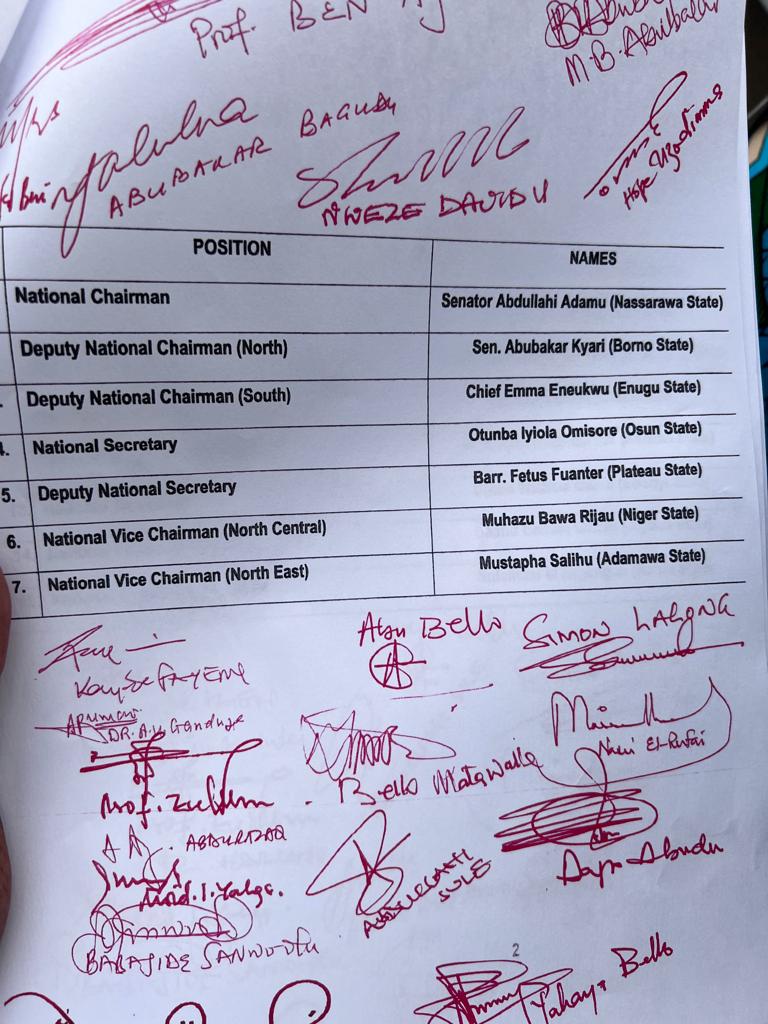 Prof. BEN
M.B. Abubakar
ABUBAKAR BAGUDU
NWEZE DAVID U
Hope Uzodimma
POSITION NAMES
National Chairman Senator Abdullahi Adamu (Nassarawa State)
Deputy National Chairman (North) Sen. Abubakar Kyari (Borno State)
Deputy National Chairman (South) Chief Emma Eneukwu (Enugu State)
4. National Secretary Otunba Iyiola Omisore (Osun State)
5. Deputy National Secretary Barr. Fetus Fuanter (Plateau State)
6. National Vice Chairman (North Central) Muhazu Bawa Rijau (Niger State)
7. National Vice Chairman (North East) Mustapha Salihu (Adamawa State)
Abu Bello
SIMON LALONG
Kayode FAYEMI
DR. A.U. Ganduje
Nasir El-Rufai
Bello Matawalle
Prof. Zulum
A A. ABDULRAZAQ
Dapo Abiodun
ABDULLAHI SULE
Moh'd. I. Yahya.
BABAJIDE SANWOOLU
2
Yahaya Bello